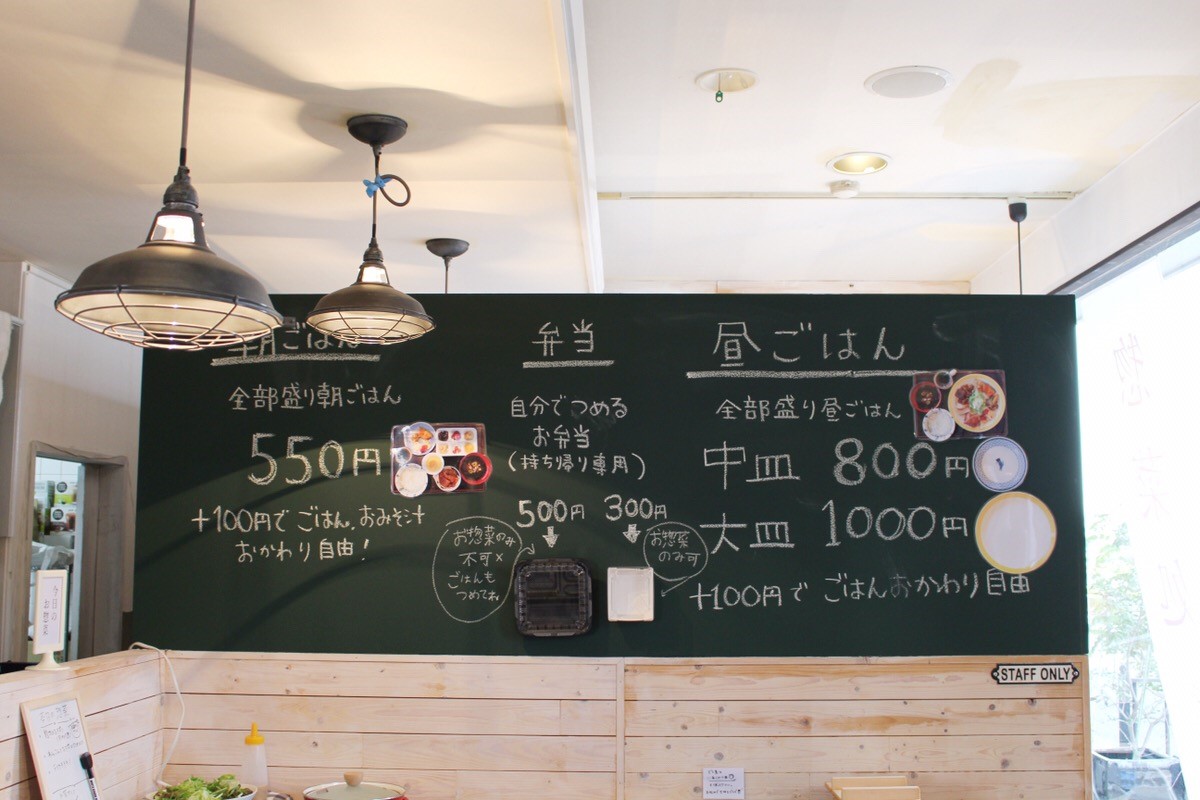 朝ごはん
全部盛り朝ごはん
550円
+100円で ごはん、おみそ汁
おかわり自由!
弁当
自分でつめる
お弁当
(持ち帰り専用)
500円 300円
お惣菜のみ
不可×
ごはんも
つめてね
お惣菜
のみ可
昼ごはん
全部盛り昼ごはん
中皿 800円
大皿 1000円
+100円で ごはんおかわり自由
STAFF ONLY
今日の
お惣菜
惣菜